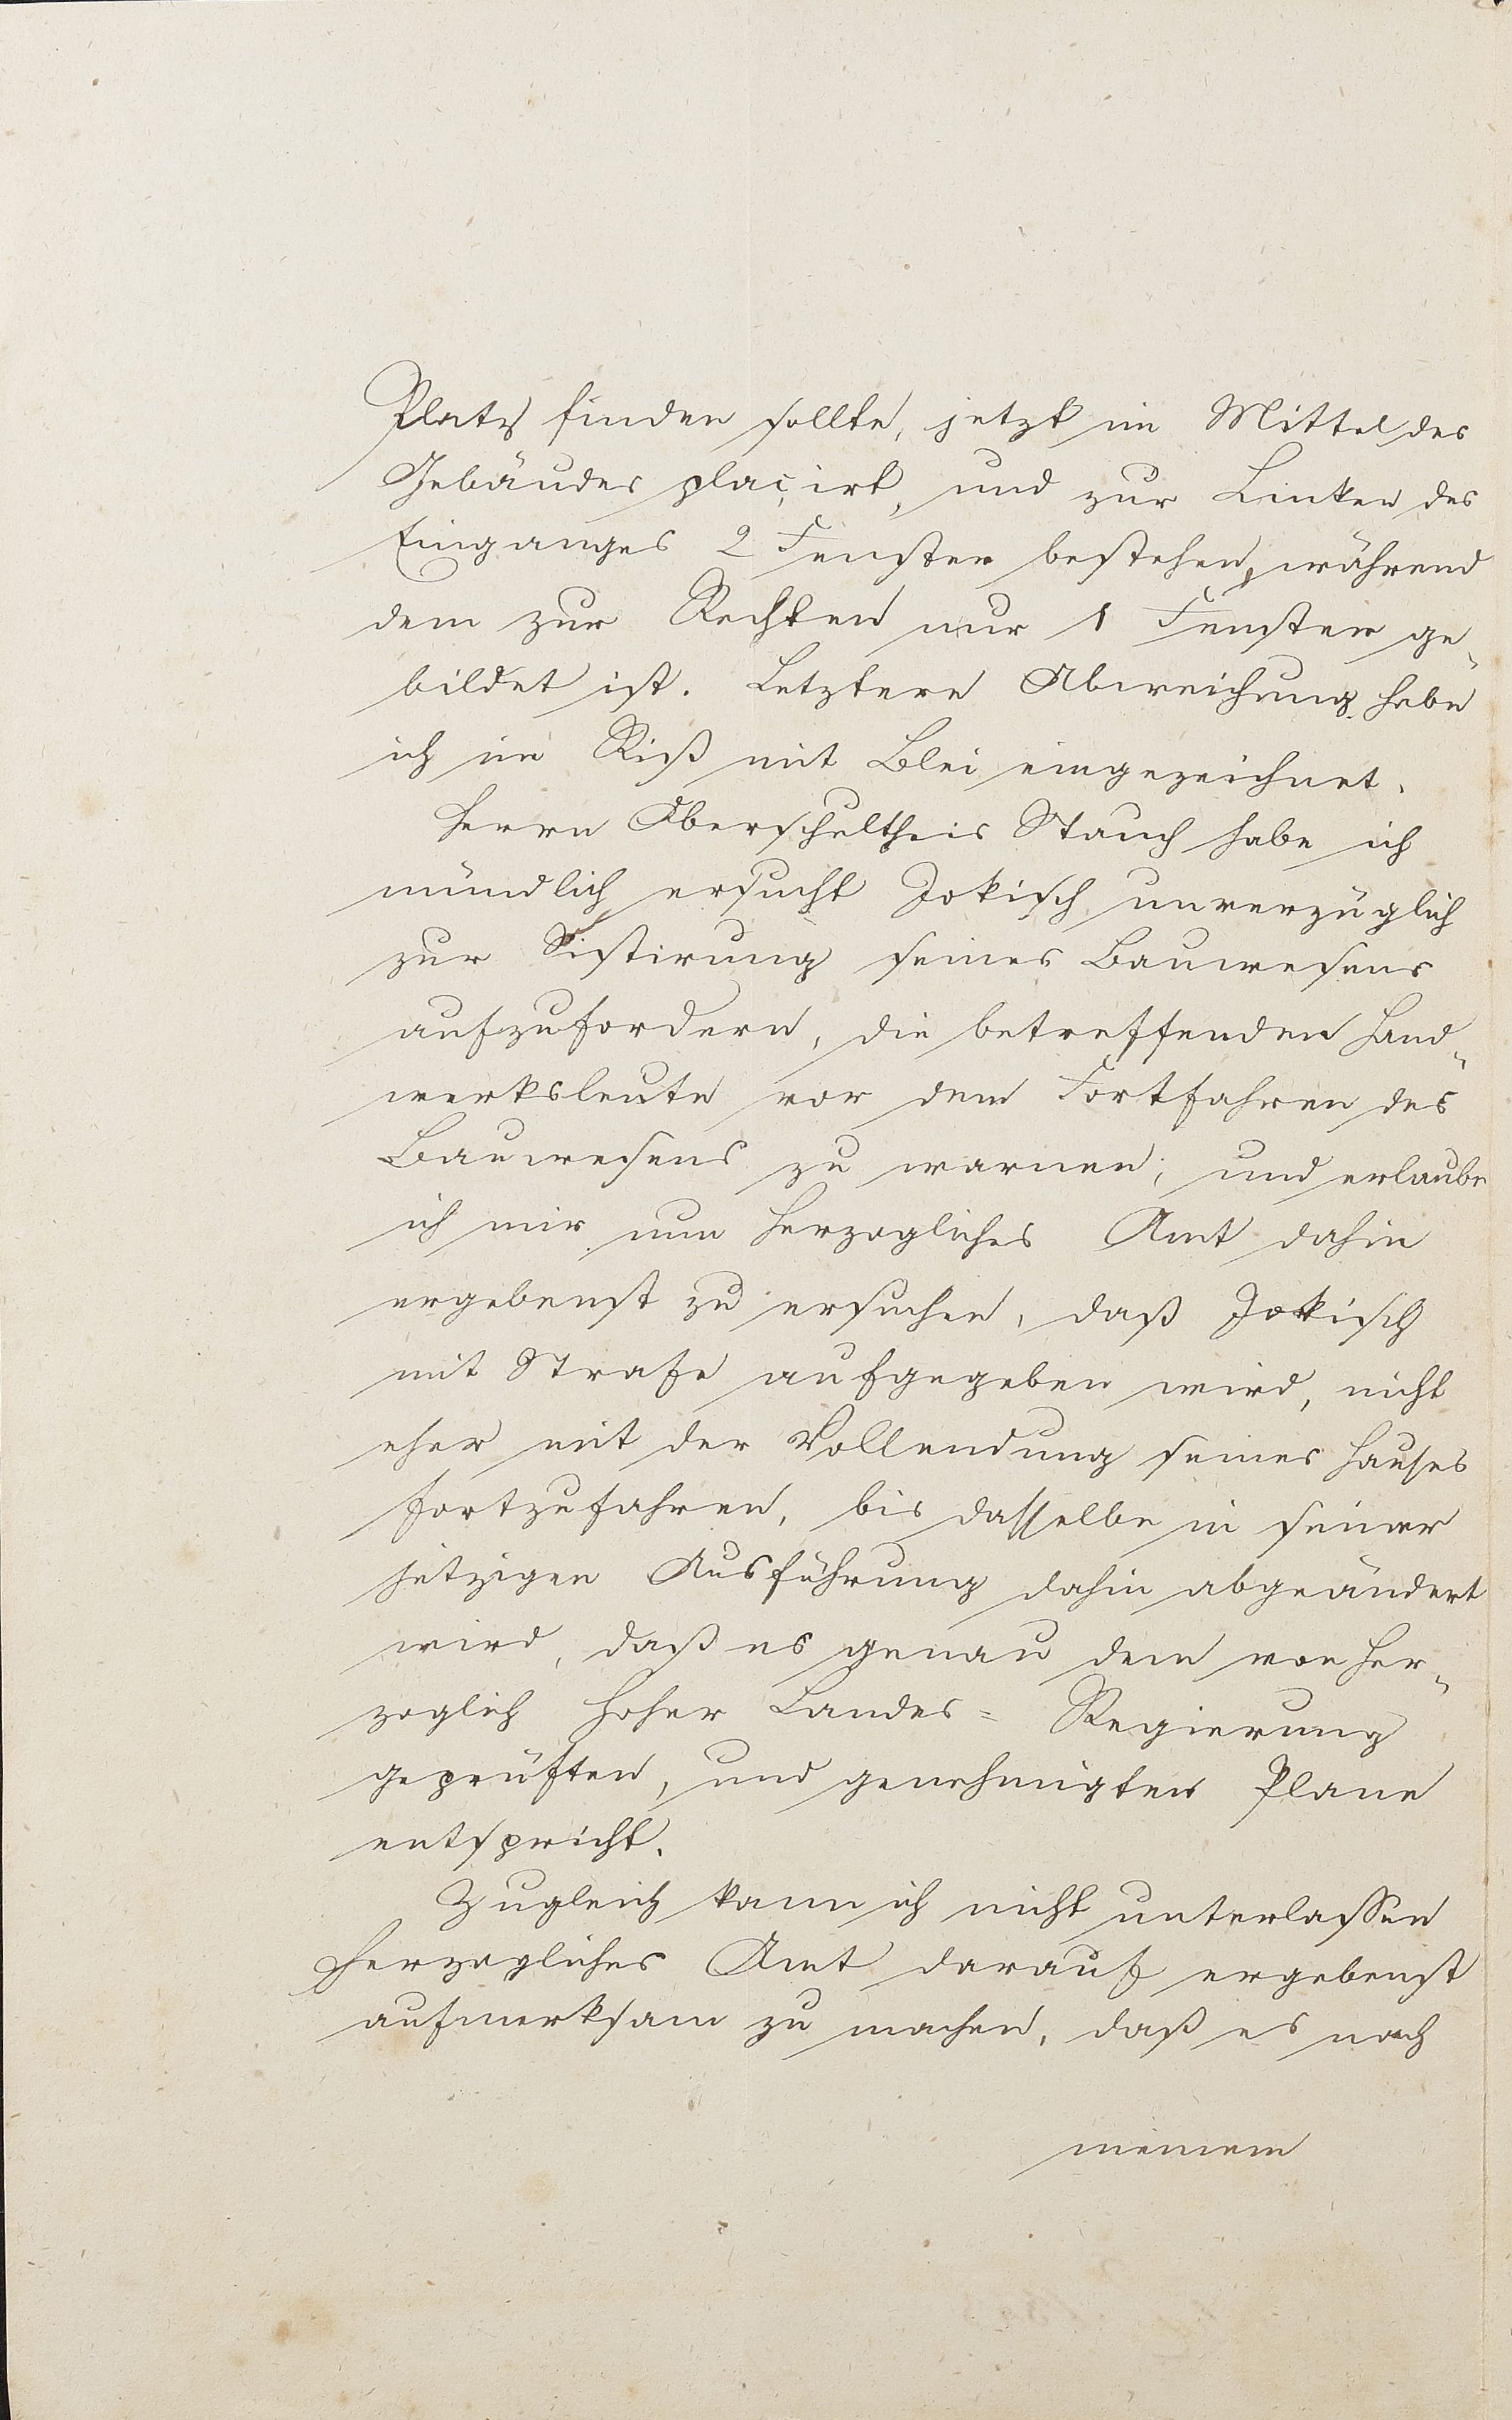 Platz finden sollte, jetzt im Mittel des
Gebäudes plaçirt, und zur Linken des
Einganges 2 Fenster bestehen, während
dem zur Rechten nur 1 Fenster ge-
bildet ist. Letztere Abweichung habe
ich im Riß mit Blei eingezeichnet.
Herrn Oberschultheis Stauch habe ich
mündlich ersucht Jokisch unverzüglich
zur Sistirung seines Bauwesens
aufzufordern, die betreffenden Hand-
werksleute vor dem Fortfahren des
Bauwesens zu warnen; und erlaube
ich mir nun Herzogliches Amt dahin
ergebenst zu ersuchen, daß Jokisch
mit Strafe aufgegeben wird, nicht
eher mit der Vollendung seines Hauses
fortzufahren, bis dasselbe in seiner
jetzigen Ausführung dahin abgeändert
wird, daß es genau dem von Her-
zoglich hoher Landes-Regierung
geprüften, und genehmigten Plane
entspricht.
Zugleich kann ich nicht unterlassen
Herzogliches Amt darauf ergebenst
aufmerksam zu machen, daß es nach
meinem